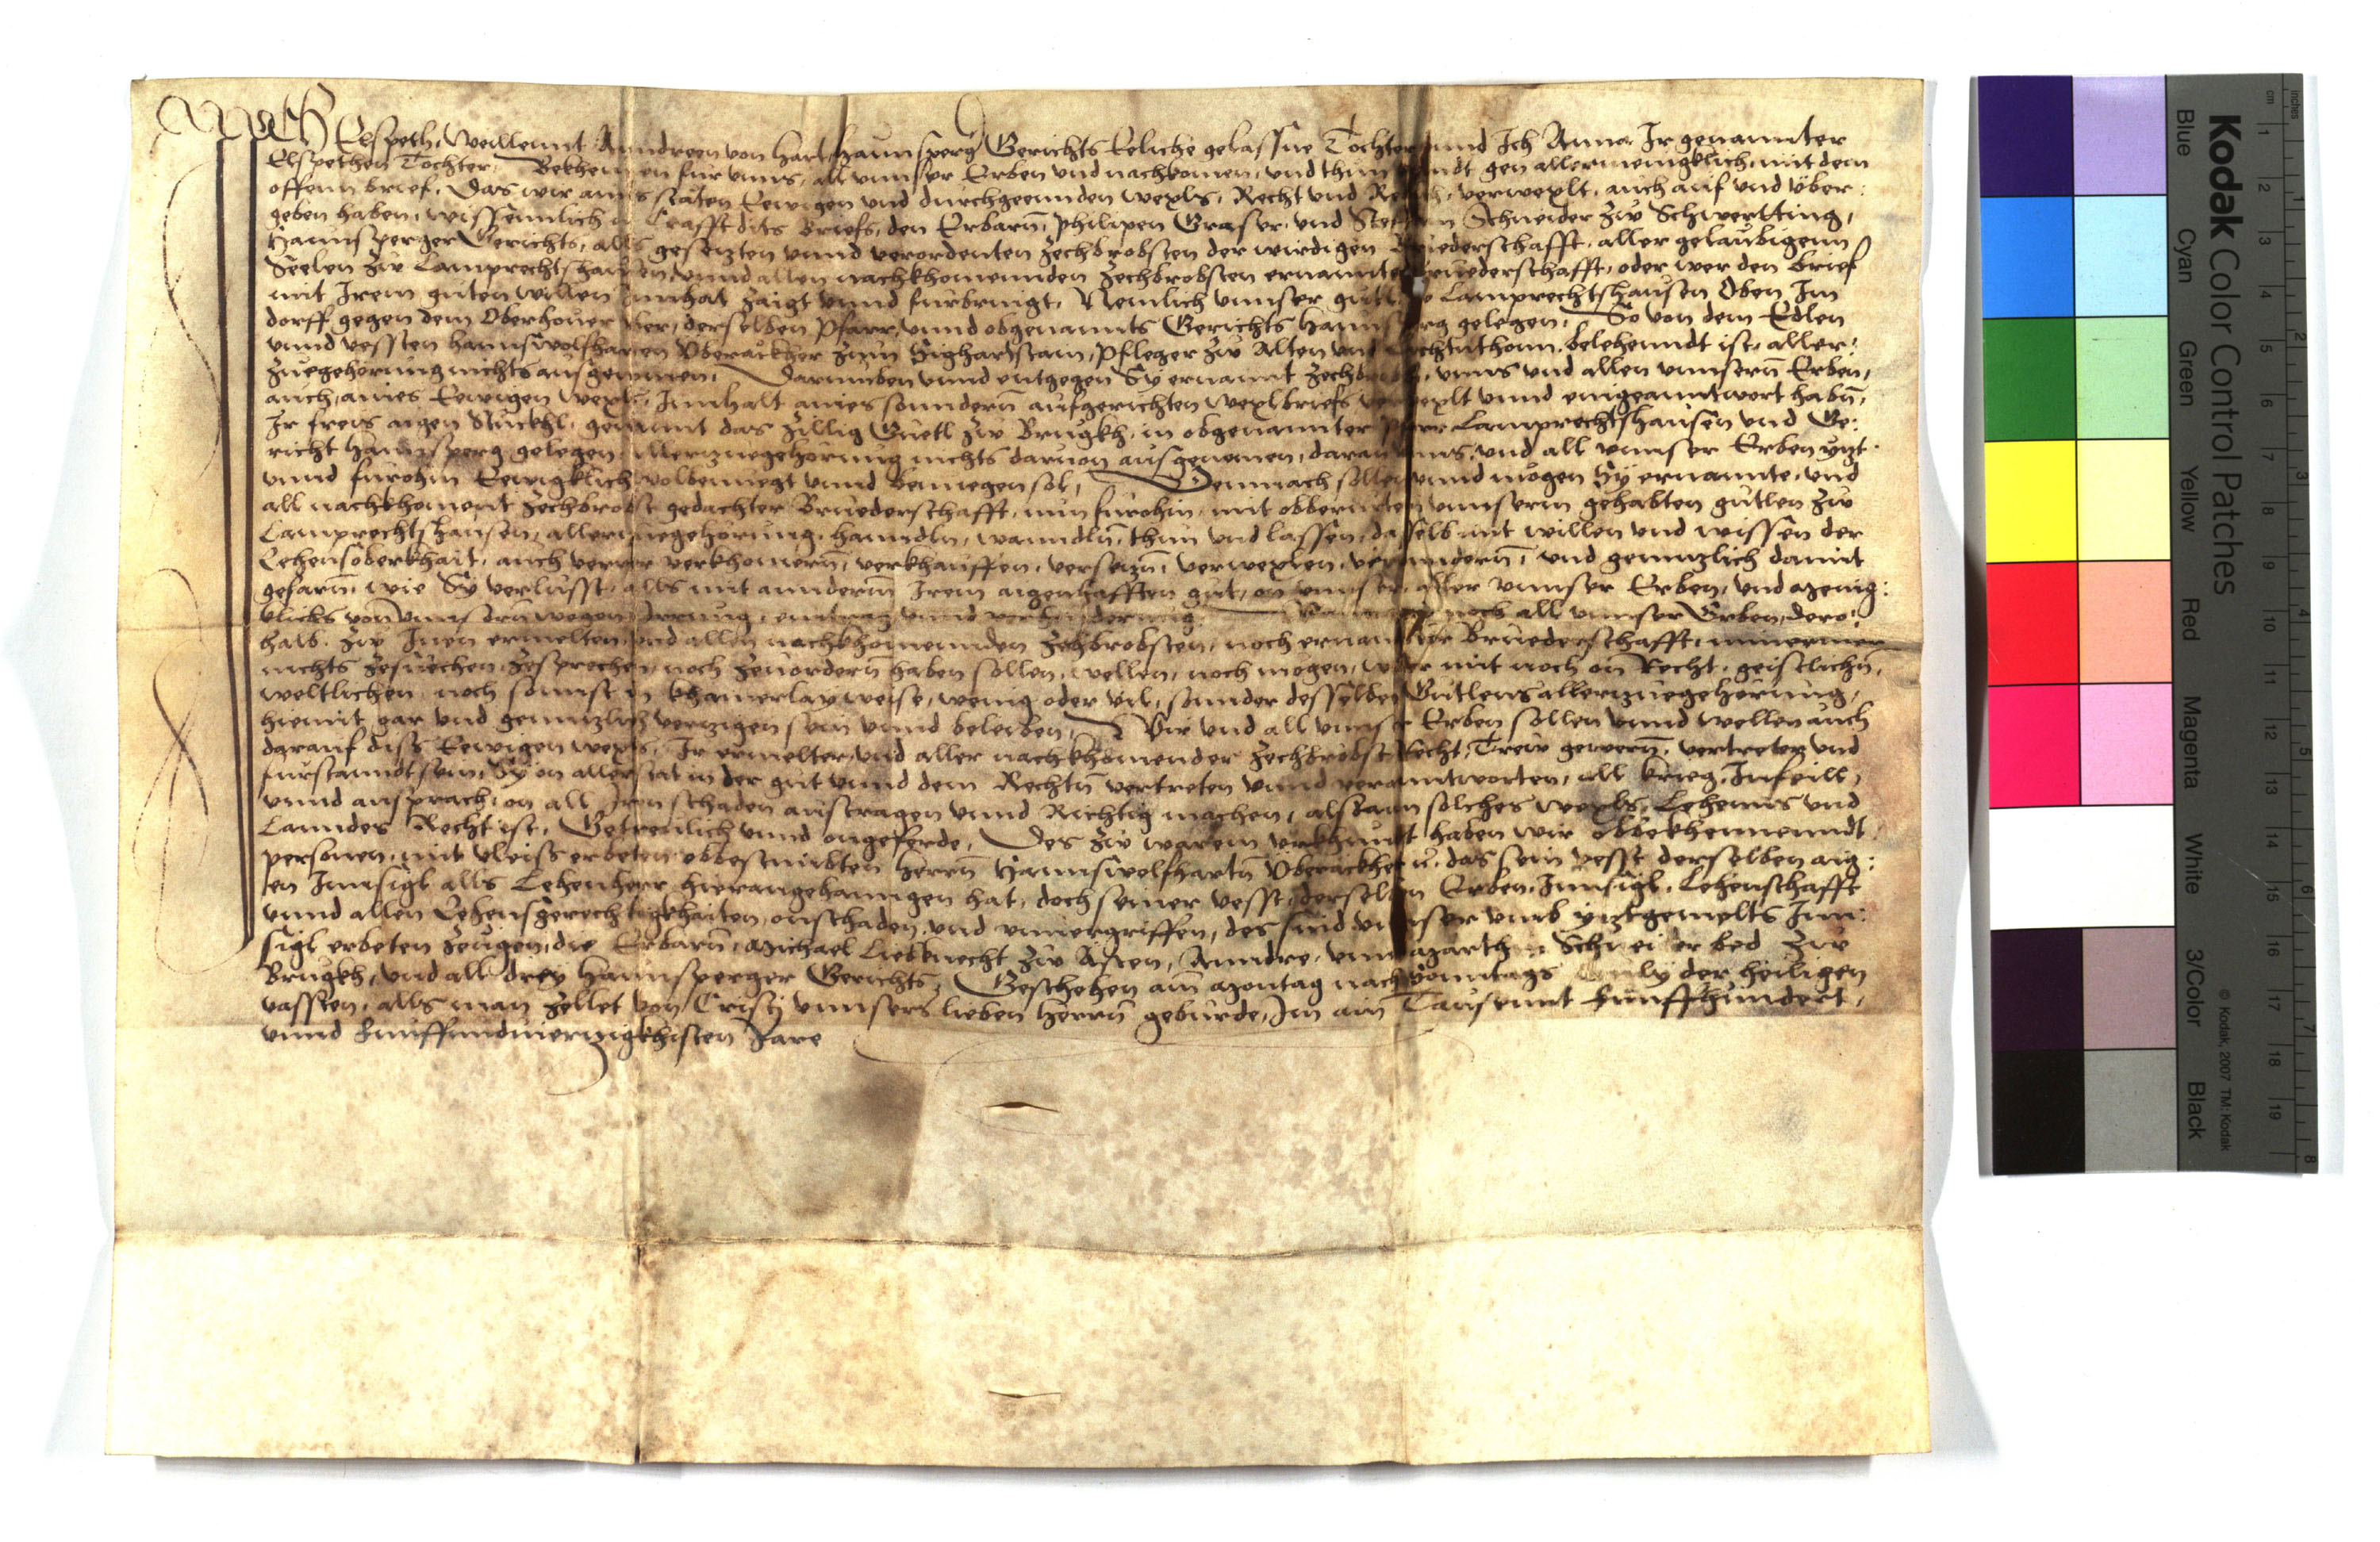 Ich Elspeth, Weillennt Anndreen von Hart, Haunsperg Gerichts Eeliche gelassne Tochter, unnd Ich Anna Ir genannter
Elspethen Tochter, Bekhennen fur unns, all unnser Erben und nachkomen, und thun khundt gen allermenigklich, mit dem
offenn brief, Das wir ains stäten Eewigen und durchgeennden wexls, Recht und Redlich, verwexlt, auch auf und über:
geben haben, wissenntlich in Crafft dits Briefs, den Erbarn, Philipen Graser, und Steffan Schneider zw Schwertting,
Haunsperger Gerichts, alls gesetzten unnd verordenten Zechbrobsten der wirdigen Bruederschafft, aller gelaubigenn
Seelen zw Lamprechtshausen, unnd allen nachkhomennden Zechbrobsten ernannter bruederschafft, oder wer den brief
mit Irem guten willen innhat zaigt unnd furbringt, Nemlich unnser güetl zw Lamprechtshausen Oben Im
dorff gegen dem Oberhouer uber, derselben Pfarr, unnd obgenannts Gerichts Haunsperg gelegen, So von dem Edlen
unnd vessten Hannswolfharten Überäckher zum Sighartstain, Pfleger zw Alten und Liechtnthonn, belehenndt ist, aller:
zuegehorung nichts ausgenomen, Darumben unnd entgegen Sy ernannt Zechbrobst, unns und allen unnsern Erben,
auch, aines Eewigen wexls, Innhalt aines sonndern aufgerichten wexlbriefs verwexlt unnd eingeantwort habn,
Ir freis aigen Stuckhl, genannt das Zillig Güetl zw Brugkh, in obgenannter Pfarr Lamprechtshausen und Ge:
richt Haunsperg gelegen, allerzuegehorung nichts davon ausgenomen, daran unns, und all unnser Erben yzt
unnd furohin Eewigklich wolbenuegt unnd benuegen sol, Demnach sollen unnd mögen Sy ernannte, und
all nachkhoment Zechbrobst gedachter Bruederschafft, nun furohin, mit obberurten unnserm gehabten gutlen zw
Lamprechtshausen, allerzuegehorung, hanndln, wanndln, thun und lassen, dasselb mit willen und wissen der
Lehensoberkhait, auch verrer verkhomern, verkhauffen, versezn, verwexlen, veranndern, und genntzlich damit
gefarn, wie Sy verlusst, alls mit annderm Irem aigenhafften gut, on unnser, aller unnser Erben, und menig:
klichs von unnsern wegen Irrung, eintrag unnd verhinderung, noch all unnser Erben, dero:
halb, zw Inen ermelten, und allen nachkhomennden Zechbrobsten, noch ernannter Bruederschafft, nimermer
nichts zesuechen, zesprechen, noch zevordern haben sollen, wellen, noch mögen, weder mit noch on Recht, geistlichn,
weltlichen, noch sonnst in khainerlay weise, wenig oder vil, sonnder desselben Gutlens allerzuegehorung,
hiemit gar und genntzlich verzigen sein unnd beleiben, Wir und all unnser Erben sollen unnd wellen auch
darauf diss Eewigen wexls, Ir ermelter, und aller nachkhomender Zechbrobst Recht, Trew gewern, vertreter und
furstanndt sein, Sy on aller stat in der güt unnd dem Rechtn vertreten unnd verantworten, all krieg, Infeill,
unnd ansprach, on all Iren schaden austragen unnd Richtig machen, alsdann solches wexls, Lehenns und
Lanndes Recht ist, Getreulich unnd ongeferde, Des zw warem urkhundt haben wir obbekhennenndt
personen, mit vleiss erbeten obbestimbten Herrn Hannswolfhartn Überäckher u. das sein vesst derselben aig:
en Innsigl alls Lehenherr hierangehanngen hat, doch seiner vesst, derselben Erben, Innsigl, Lehenschafft
unnd allen Lehensgerechtigkhaiten, onschaden, und unvergriffen, des sind unnser umb yztgemelts Inn:
sigl erbeten Zeugen, die Erbarn, Michael Liebknecht zw Asten, Anndre, unnd Marthin Schneider bed zw
Brugkh, und all drey Haunsperger Gerichts, Geschehen am Montag nach Sonntags der heiligen
vassten, alls man zellet von Cristj unnsers lieben Herrn geburde, Im ain Tausennt Funffhundert,
unnd Funffundvierzigkhisten Jare
Kodak Color Control Patches
Blue Cyan Green Yellow Red Magenta White 3/Color Black
© Kodak, 2007 TM: Kodak
Inches 1 2 3 4 5 6 7 8
cm 1 2 3 4 5 6 7 8 9 10 11 12 13 14 15 16 17 18 19